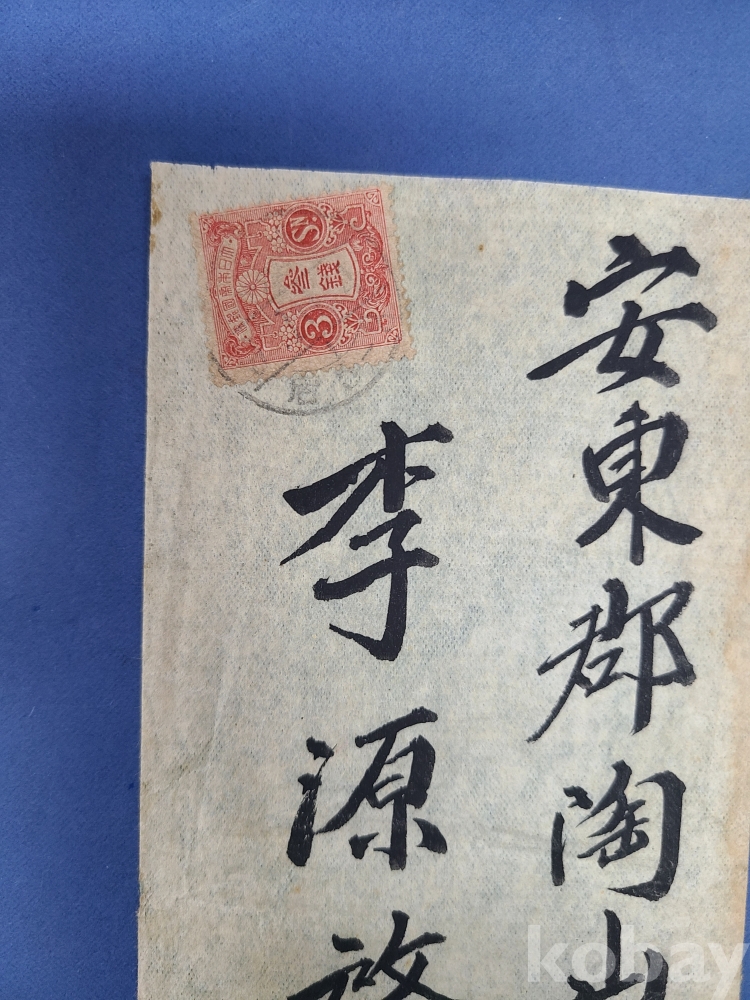 安東郡陶山
李源
3 Sn.
参銭
大日本帝國郵便
kobay